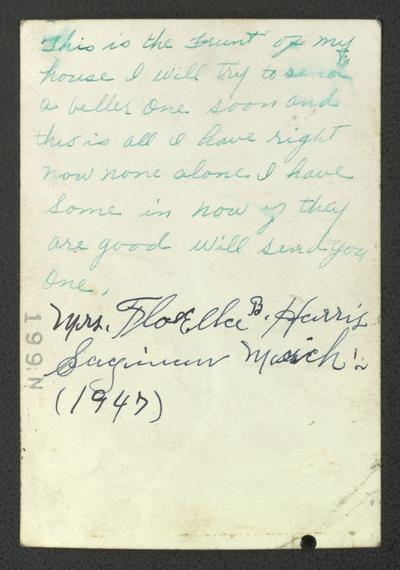 This is the Frunt of my
house I will try to send
a beller one soon and
this is all I have right
now none alone I have
some in now if they
are good will send you
one,
Mrs. FloElla B. Harris
Saginaw Mich.
(1947)
199N